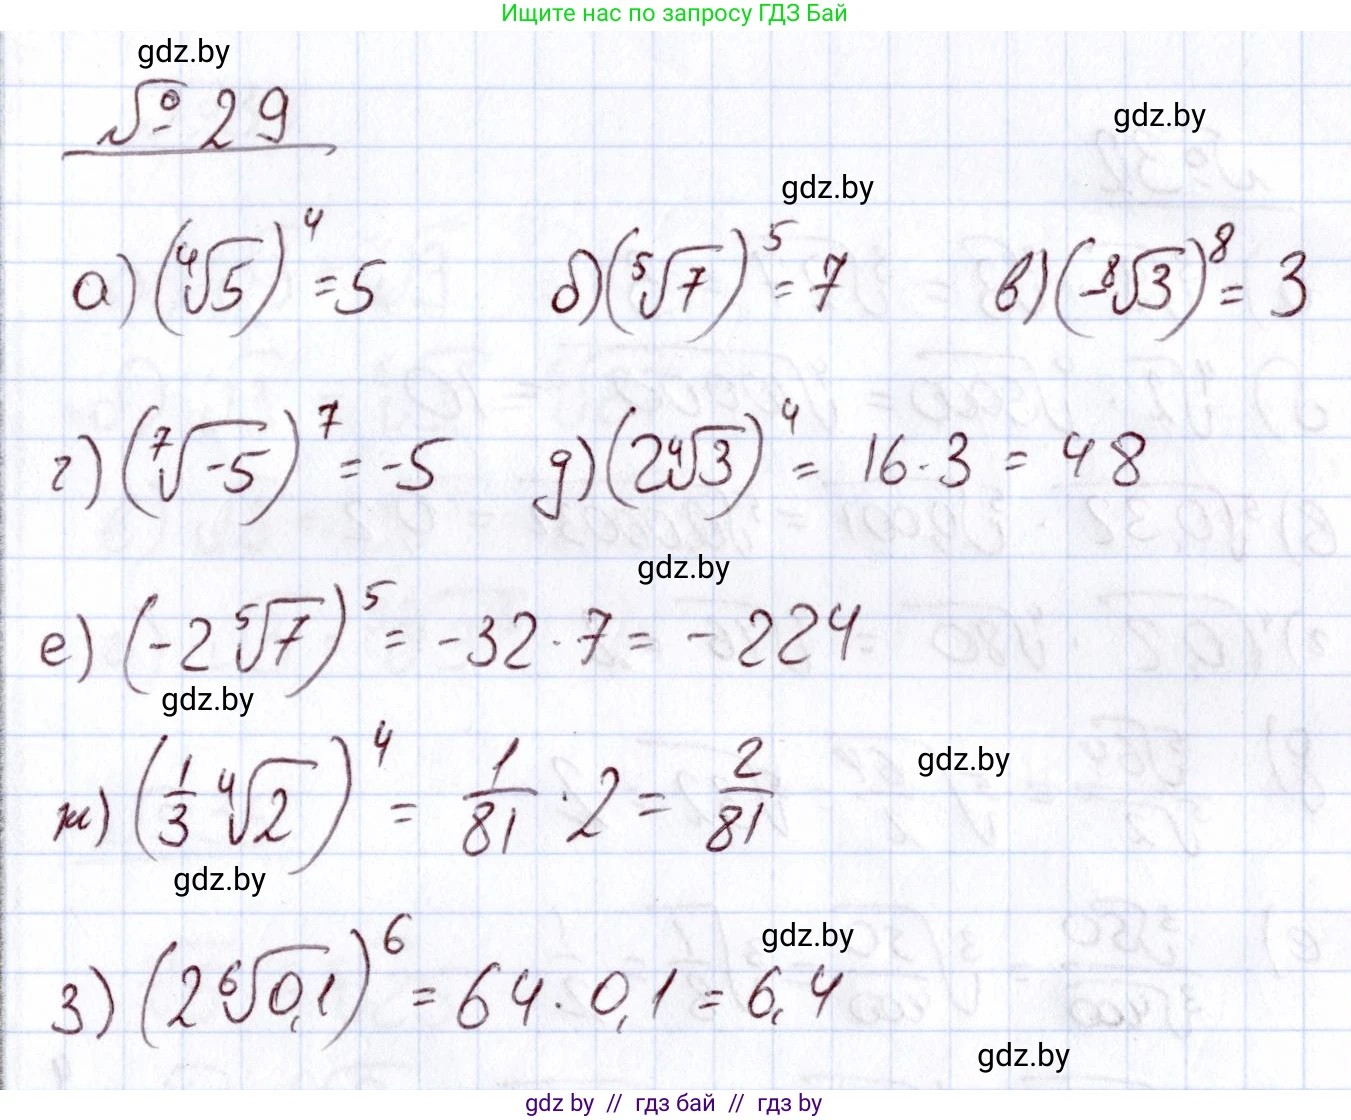 Ищите нас по запросу ГДЗ Бай
gdz.by
№ 29
gdz.by
gdz.by
а) (⁴√5)⁴ = 5 б) (⁵√7)⁵ = 7 в) (-⁸√3)⁸ = 3
г) (⁷√-5)⁷ = -5 д) (2⁴√3)⁴ = 16·3 = 48
gdz.by
е) (-2⁵√7)⁵ = -32·7 = -224
gdz.by
ж) (1/3 ⁴√2)⁴ = 1/81 · 2 = 2/81
gdz.by
gdz.by
з) (2⁶√0,1)⁶ = 64·0,1 = 6,4
gdz.by
gdz.by
gdz by // гдз бай // гдз by